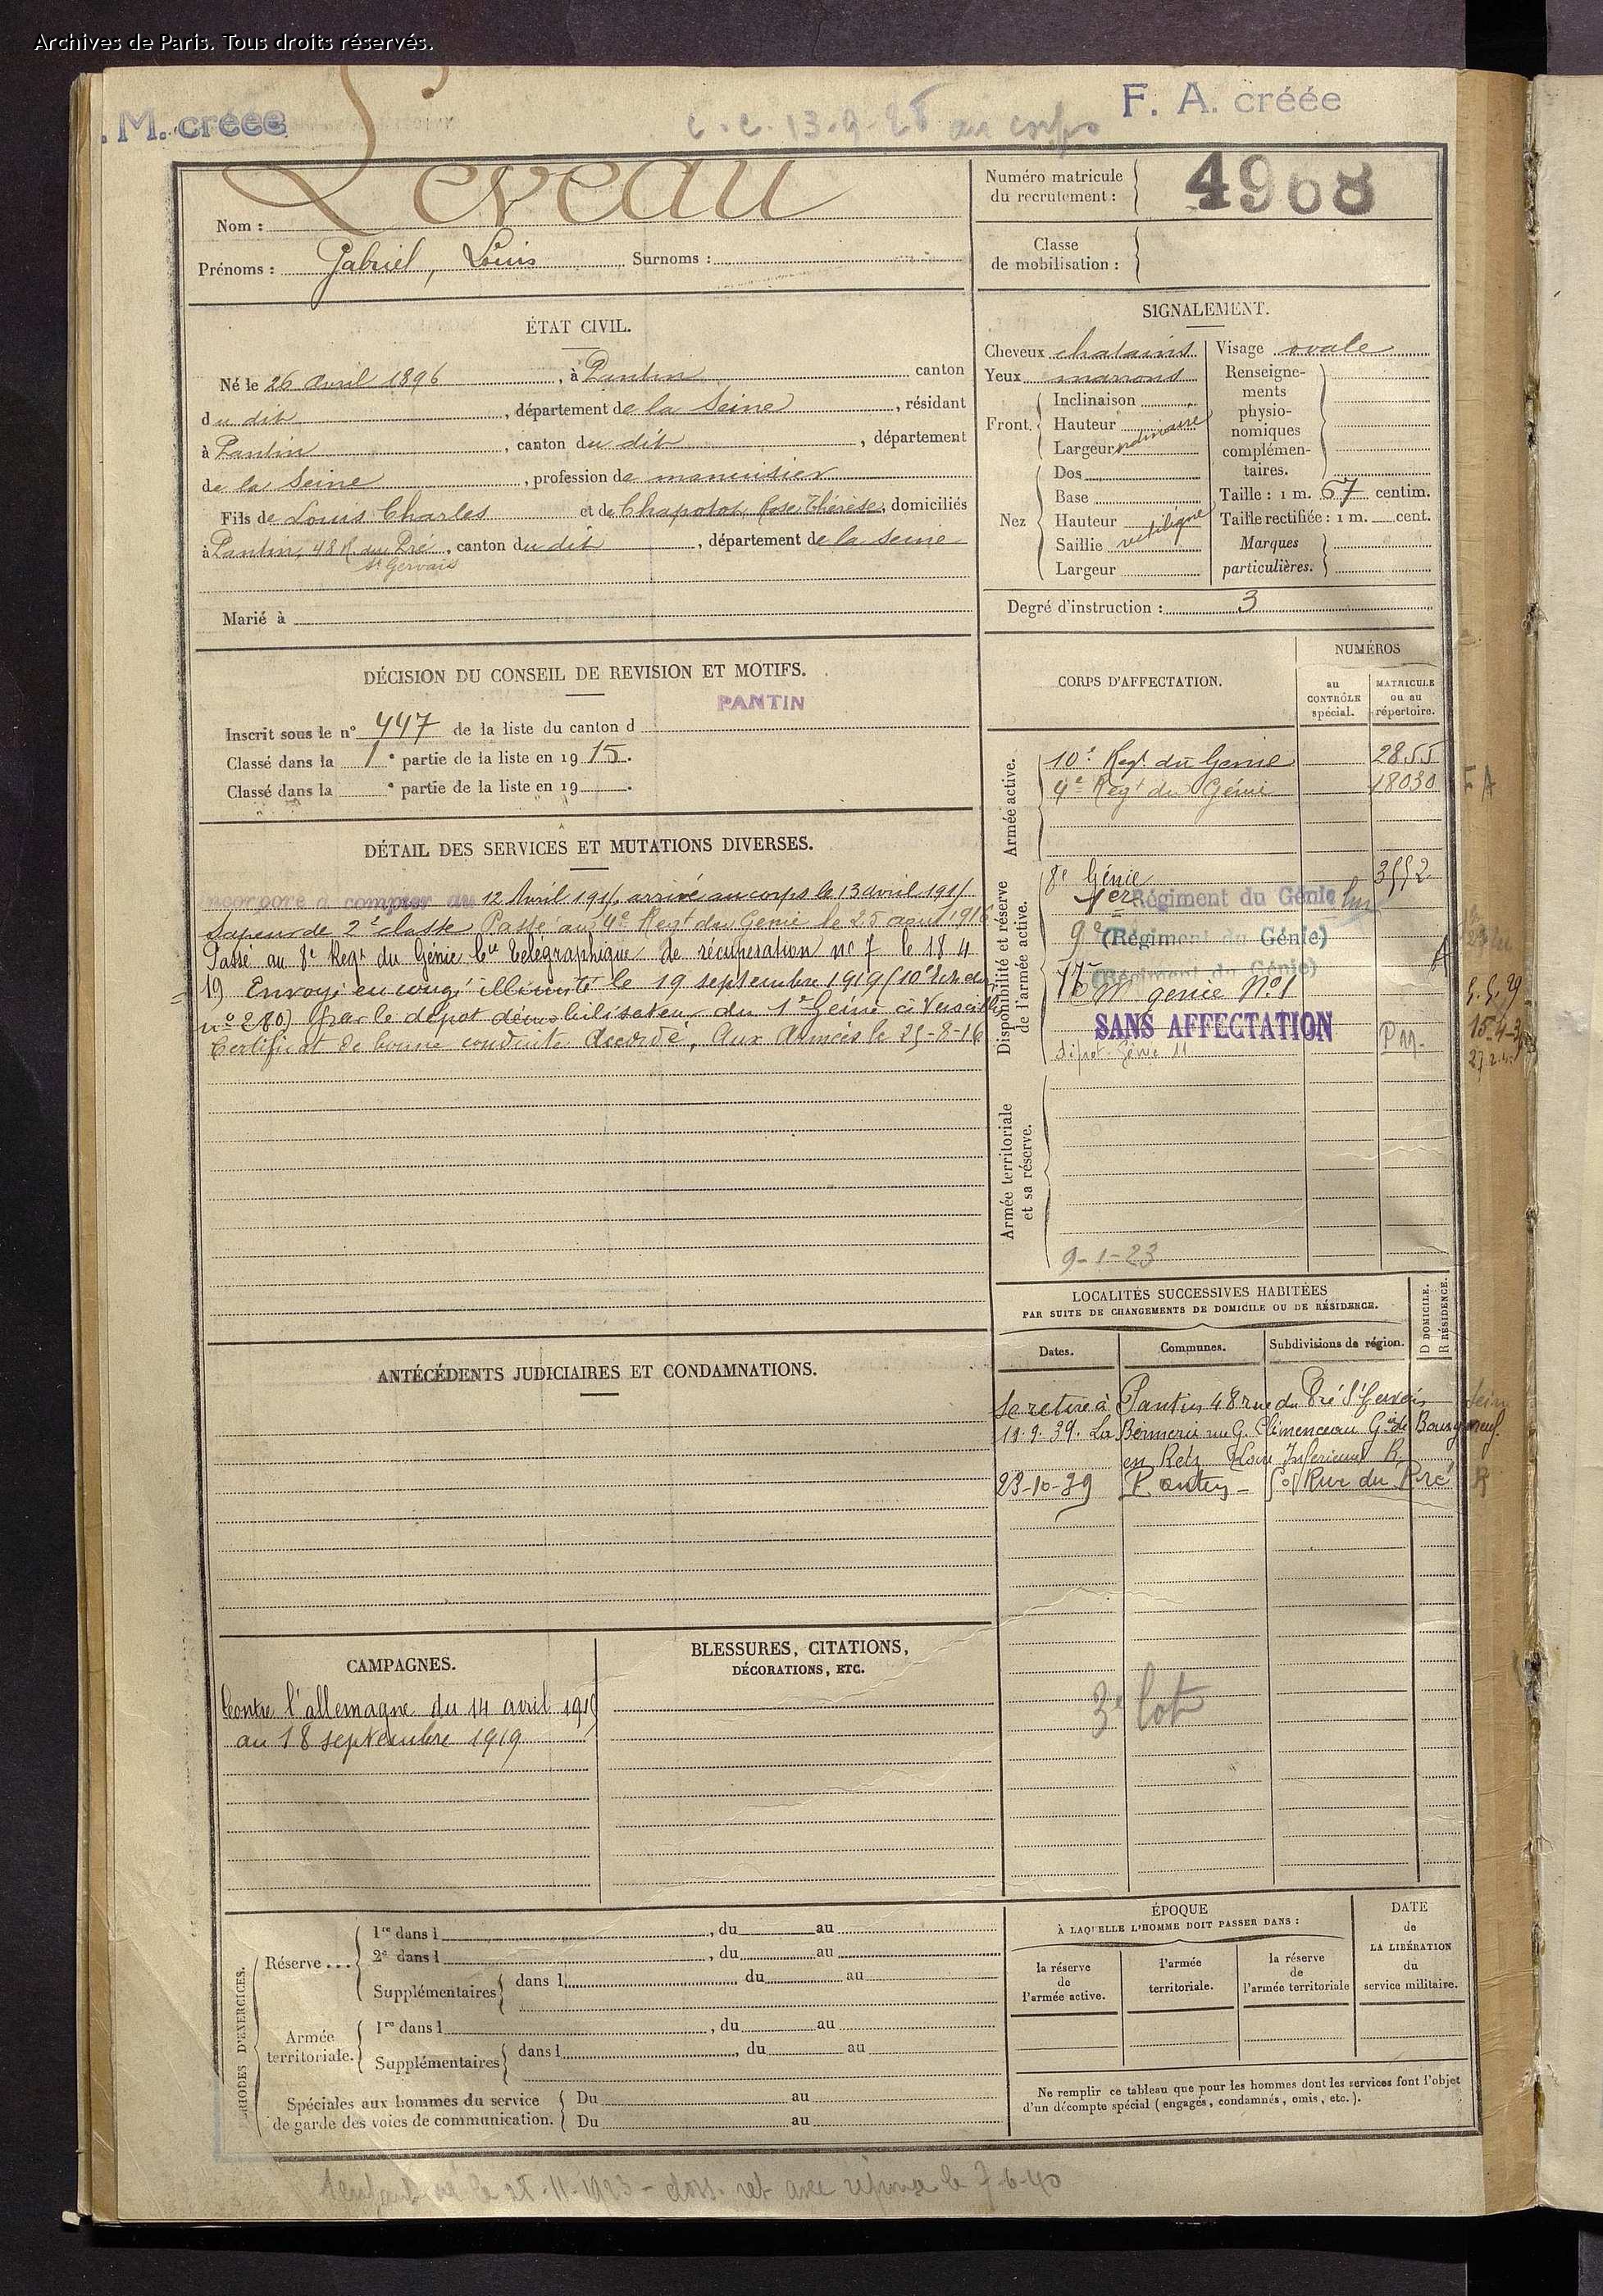 Archives de Paris. Tous droits réservés.
. M. créée
c. c. 13-9-28 au corps
F. A. créée
Nom : Leveau
Prénoms : Gabriel, Louis Surnoms :
Numéro matricule
du recrutement :
4968
Classe
de mobilisation :
ÉTAT CIVIL.
Né le 26 avril 1896, à Pantin canton
du dit, département de la Seine, résidant
à Pantin, canton du dit, département
de la Seine, profession de menuisier
Fils de Louis Charles et de Chapotot, Rose Thérèse, domiciliés
à Pantin, 48 R. du Pré, canton du dit, département de la Seine
St Gervais
Marié à
SIGNALEMENT.
Cheveux chatains
Yeux marrons
Front.
Inclinaison
Hauteur
Largeur
Nez
Dos
Base
Hauteur
Saillie rectiligne
Largeur
Visage ovale
Renseigne-
ments
physio-
nomiques
complémen-
taires.
Taille : 1 m. 67 centim.
Taille rectifiée : 1 m. cent.
Marques
particulières.
Degré d'instruction : 3
DÉCISION DU CONSEIL DE REVISION ET MOTIFS.
PANTIN
Inscrit sous le n° 447 de la liste du canton d
Classé dans la 1e partie de la liste en 1915.
Classé dans la e partie de la liste en 19 .
DÉTAIL DES SERVICES ET MUTATIONS DIVERSES.
Incorporé à compter du 12 Avril 1915, arrivé au corps le 13 avril 1915
Sapeur de 2e classe Passé au 4e Regt du Génie le 25 aout 1916
Passé au 8e Regt du Génie Cie Télégraphique de récupération no 7 le 18 4
19 Envoyé en congé illimité le 19 septembre 1919 (10e Ech. don
no 280) par le dépot démobilisateur du 1er Génie à Versailles
Certificat de bonne conduite Accordé. Aux Armées le 25-8-16
CORPS D'AFFECTATION.
NUMÉROS
au
CONTRÔLE
spécial.
MATRICULE
ou au
répertoire.
Armée active.
10e Regt du Génie 2855
4e Regt du Génie 18030 FA
Disponibilité et réserve
de l'armée active.
8e Génie 3552
1er Régiment du Génie
9e (Régiment du Génie)
(Régiment du Génie)
génie No 1
SANS AFFECTATION
dépot Génie 11
Armée territoriale
et sa réserve.
9-1-23
LOCALITÉS SUCCESSIVES HABITÉES
PAR SUITE DE CHANGEMENTS DE DOMICILE OU DE RÉSIDENCE.
Dates.
Communes.
Subdivisions de région.
D DOMICILE.
R RÉSIDENCE.
Se retire à Pantin 48 rue du Pré St Gervais Seine
11.9.39. La Bernerie rue G. Clémenceau Gie de Bourgneuf
en Retz Loire Inférieure R
23-10-39 Pantin - Rue du Pré R
3e lot
ANTÉCÉDENTS JUDICIAIRES ET CONDAMNATIONS.
CAMPAGNES.
Contre l'allemagne du 14 avril 1915
au 18 septembre 1919
BLESSURES, CITATIONS,
DÉCORATIONS, ETC.
PÉRIODES D'EXERCICES.
Réserve ...
1re dans l , du au
2e dans l , du au
Supplémentaires dans l du au
Armée
territoriale.
1re dans l , du au
Supplémentaires dans l , du au
Spéciales aux hommes du service
de garde des voies de communication.
Du au
Du au
ÉPOQUE
À LAQUELLE L'HOMME DOIT PASSER DANS :
la réserve
de
l'armée active.
l'armée
territoriale.
la réserve
de
l'armée territoriale
DATE
de
LA LIBÉRATION
du
service militaire.
Ne remplir ce tableau que pour les hommes dont les services font l'objet
d'un décompte spécial (engagés, condamnés, omis, etc.).
le 25-11-1923 - doss. ret avec réponse le 7-6-40